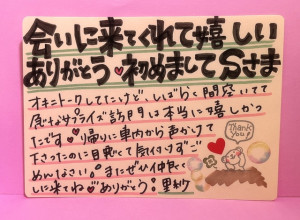 会いに来てくれて嬉しい
ありがとう♥初めましてSさま
オキニトークしてたけど、しばらく間空いてて
急なサプライズ訪問に本当に嬉しかっ
たです♥帰りに車内から声かけて
下さったのに目悪くて気付けずご
めんなさい!またぜひ仲良く
しに来てね♡ありがとう!
Thank you!